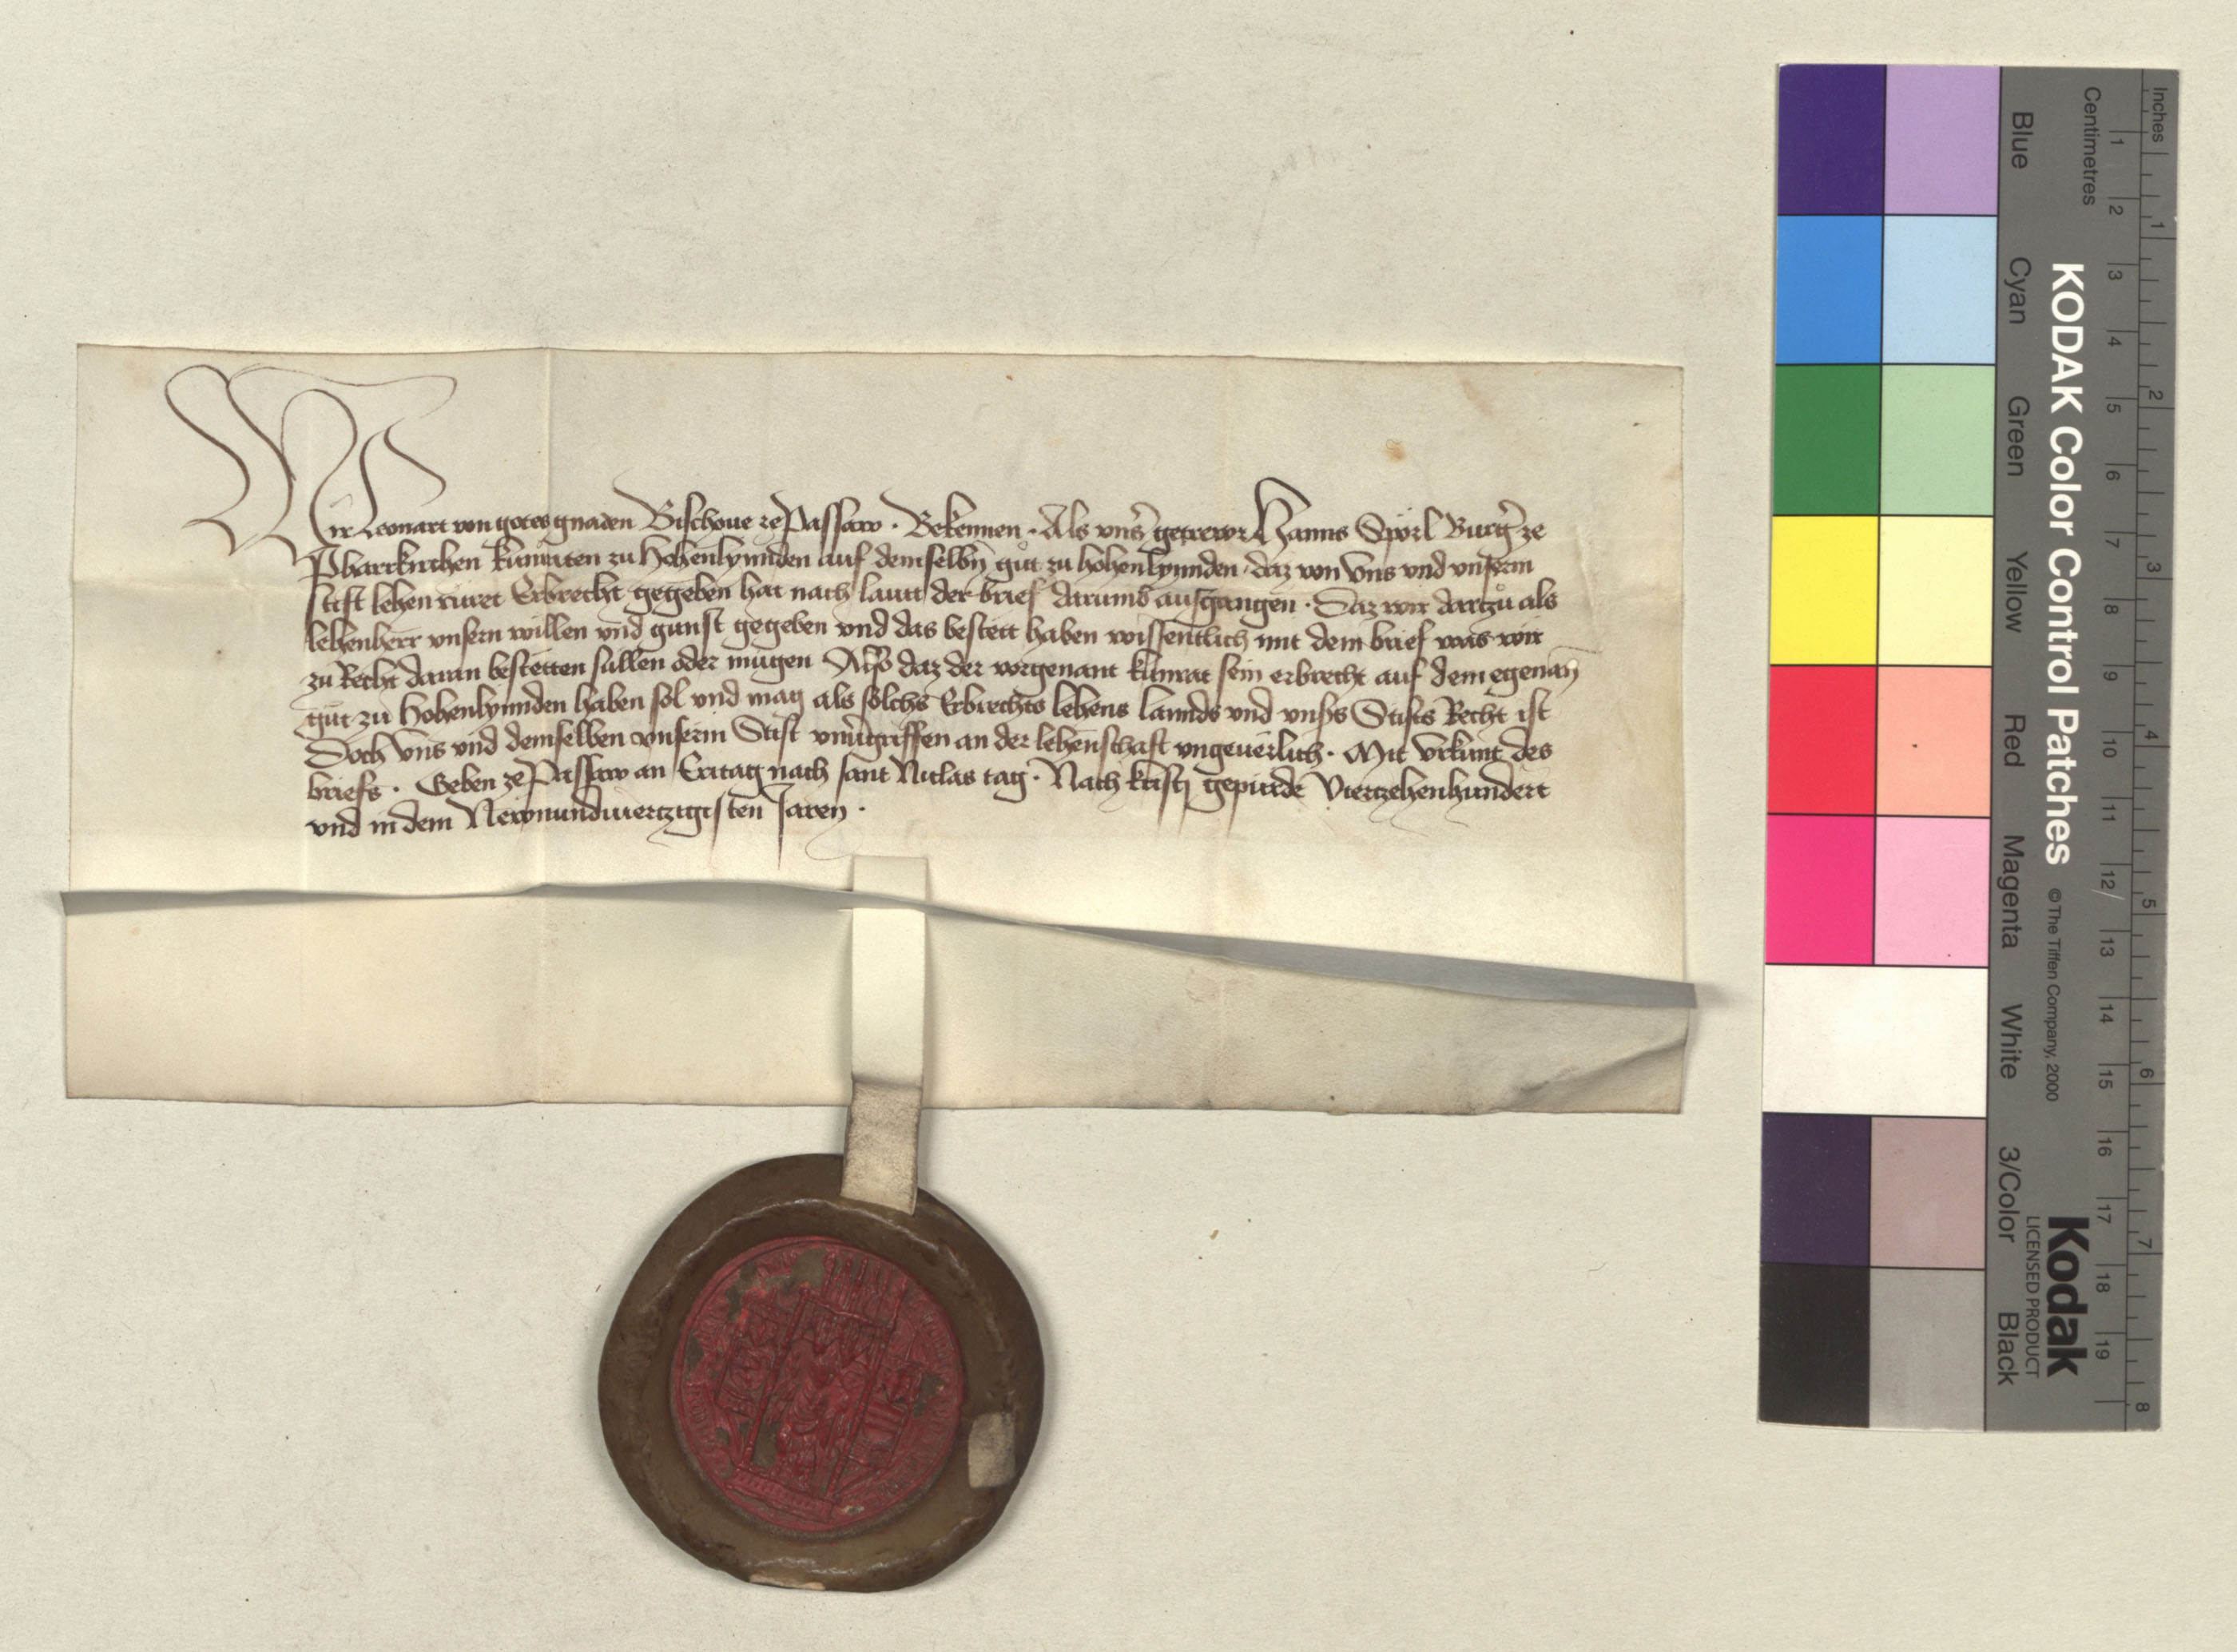 Wir Leonart von gotes gnaden Bischoue ze Passaw . Bekennen . Als vnser getrewr Hanns Spörl Burger ze
Pharrkirchen kunraten zu Hohenlynnden auf demselbn gut zu hohenlynnden daz von vns vnd vnserm
stift lehen ruret Erbrecht gegeben hat nach lautt der brief darumb ausgangen . Daz wir dartzu als
lehenherr vnsern willen vnd gunst gegeben vnd das bestett haben wissentlich mit dem brief was wir
zu Recht daran bestetten sullen oder mugen Also daz der vorgenant kunrat sein erbrecht auf dem egenan
gut zu Hohenlynnden haben sol vnd mag als solchs Erbrechts lehens lannds vnd vnsers Stifts Recht ist
Doch vns vnd demselben vnserm Stift vnuergriffen an der lehenschaft vngeuerlich . Mit vrkunt des
briefs . Geben ze Passaw an Eritag nach sant Niclas tag . Nach kristi gepurde Viertzehenhundert
vnd in dem Newnundviertzigisten Jaren .
Inches 1 2 3 4 5 6 7 8
Centimetres 1 2 3 4 5 6 7 8 9 10 11 12 13 14 15 16 17 18 19
KODAK Color Control Patches © The Tiffen Company, 2000 Kodak
LICENSED PRODUCT
Blue Cyan Green Yellow Red Magenta White 3/Color Black